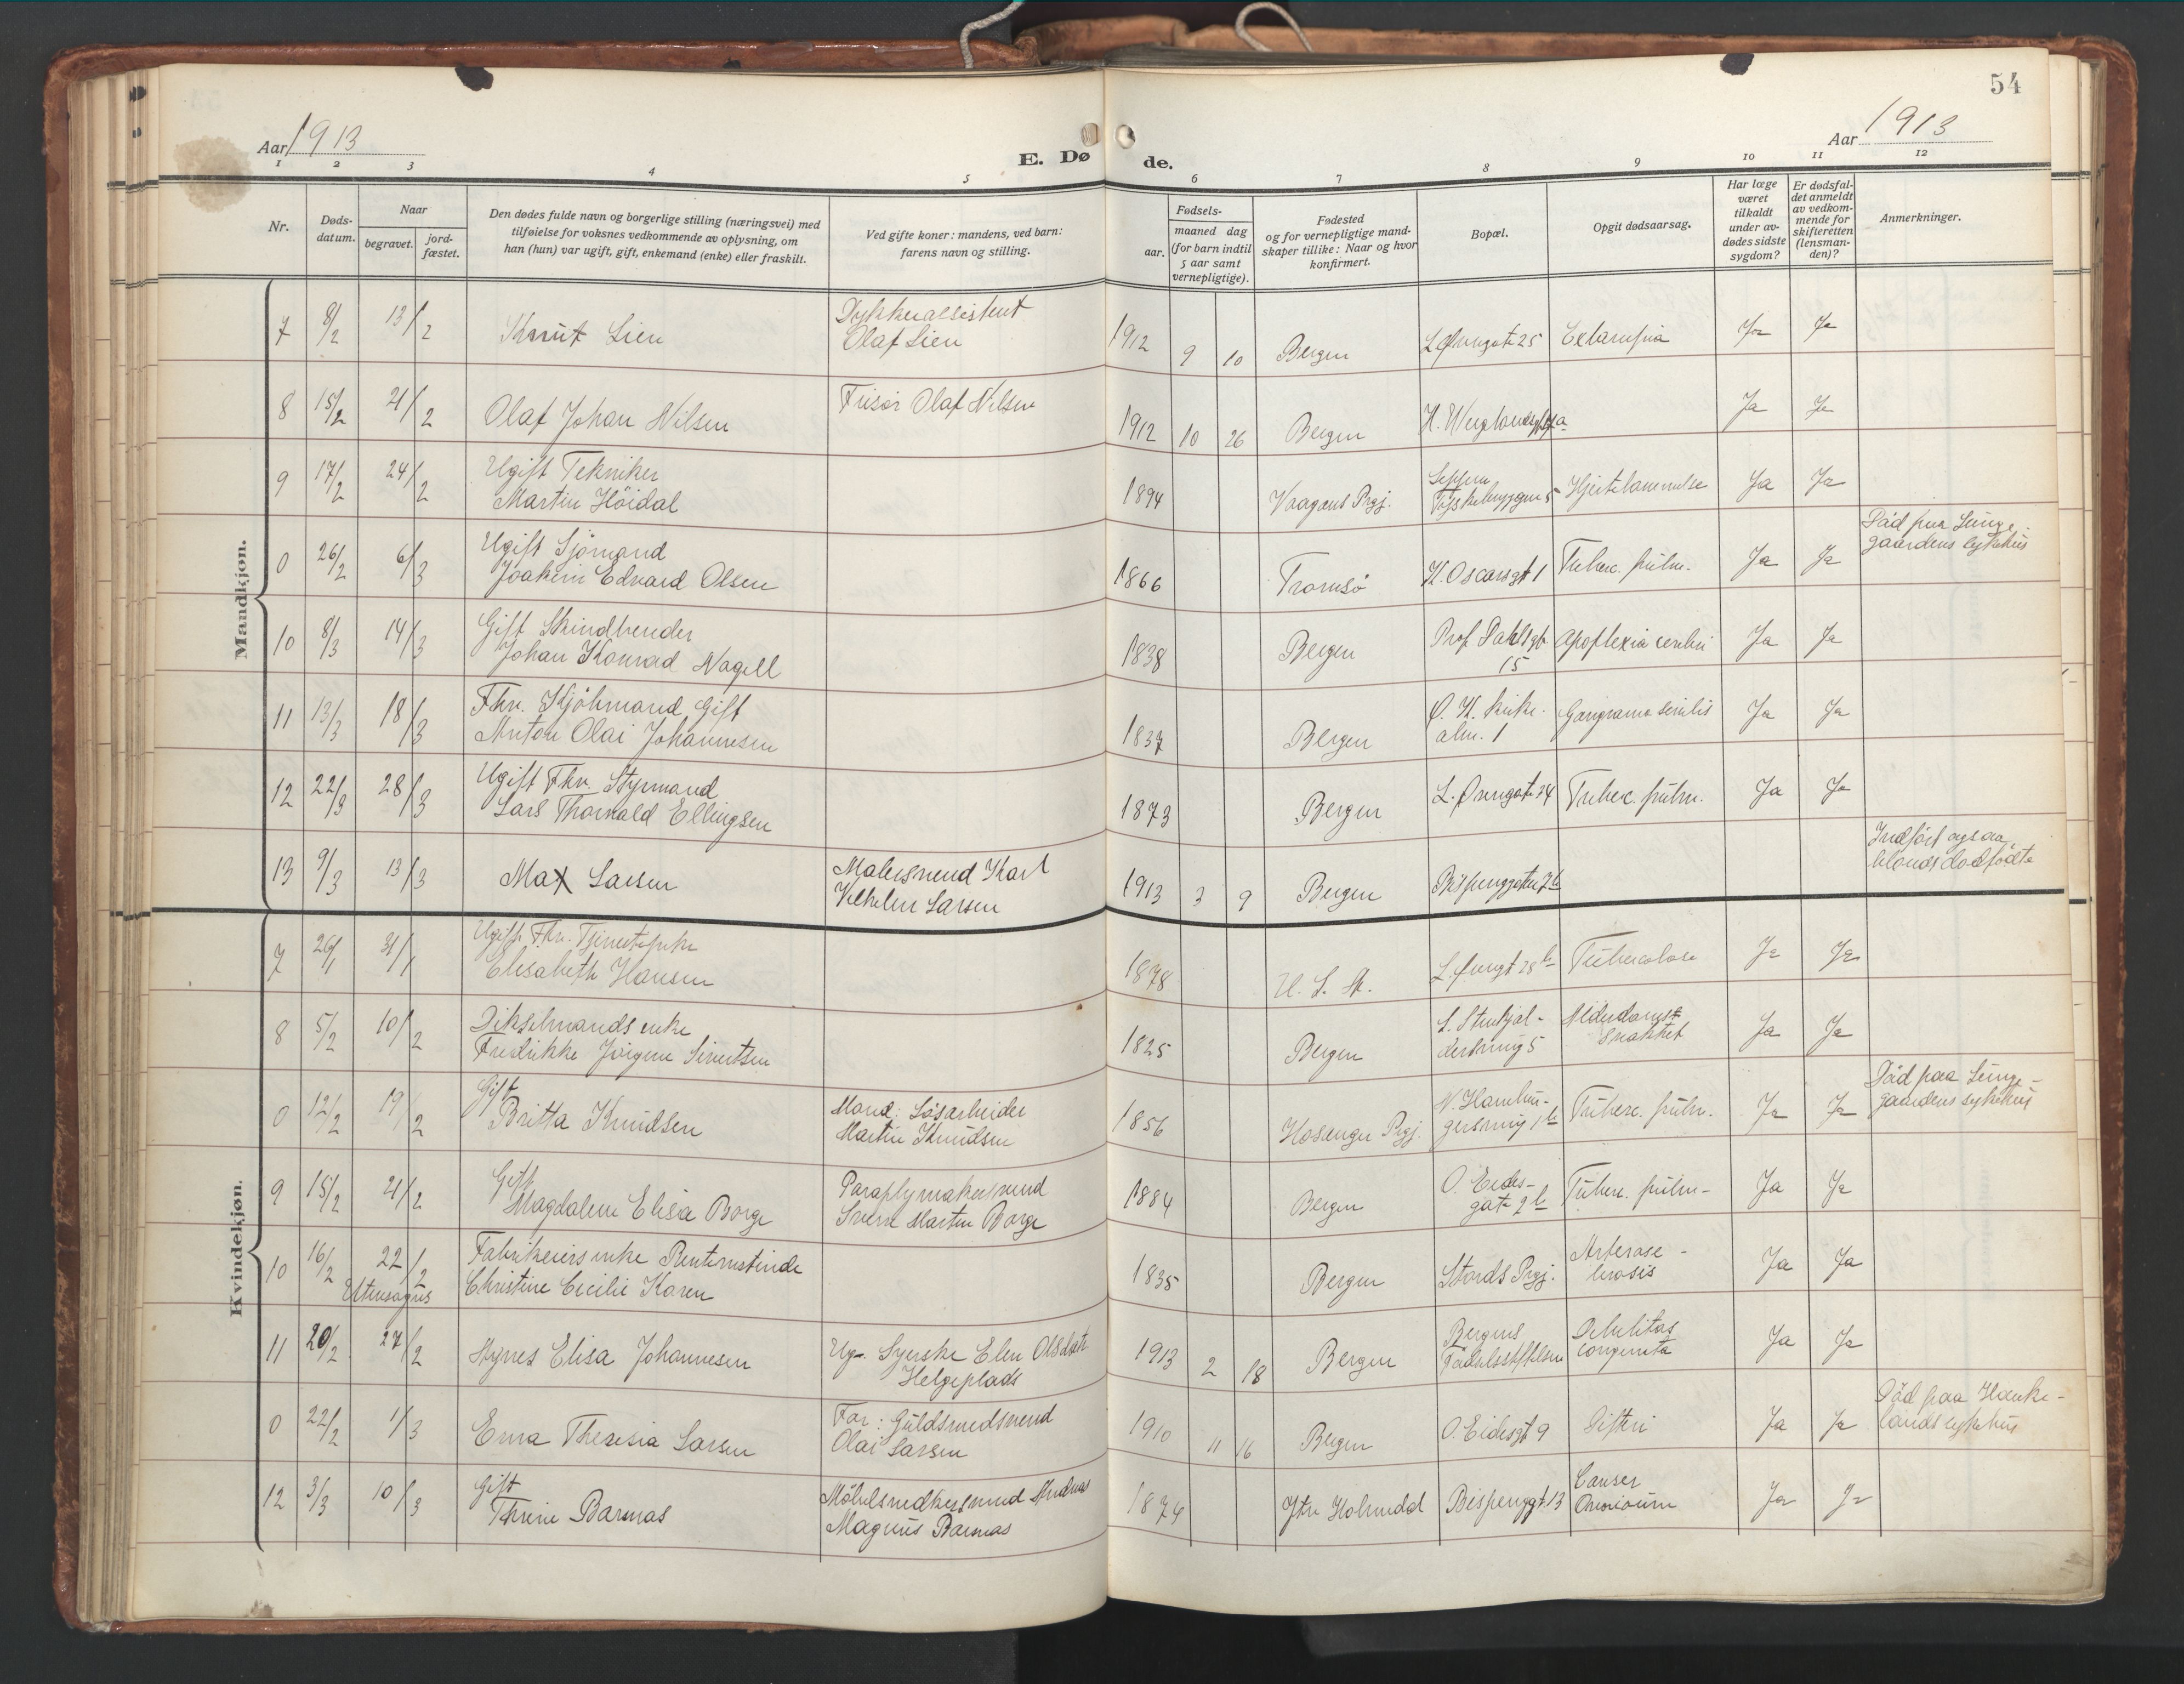 54
Aar 1913
Aar 1913
E. Dø de.
1 2 3 4 5 6 7 8 9 10 11 12
Nr.
Døds-
datum.
Naar
begravet.
jord-
fæstet.
Den dødes fulde navn og borgerlige stilling (næringsvei) med
tilføielse for voksnes vedkommende av oplysning, om
han (hun) var ugift, gift, enkemand (enke) eller fraskilt.
Ved gifte koner: mandens, ved barn:
farens navn og stilling.
Fødsels-
aar.
maaned dag
(for barn indtil
5 aar samt
vernepligtige).
Fødested
og for vernepligtige mand-
skaper tillike: Naar og hvor
konfirmert.
Bopæl.
Opgit dødsaarsag.
Har læge
været
tilkaldt
under av-
dødes sidste
sygdom?
Er dødsfal-
det anmeldt
av vedkom-
mende for
skifteretten
(lensman-
den)?
Anmerkninger.
Mandkjøn.
7 8/2 13/2 Knut Lien
Dykkerassistent
Olaf Lien
1912 9 10 Bergen L. Øvregate 25 Eclampsia Ja Ja
8 15/2 21/2 Olaf Johan Nilsen
Frisør Olaf Nilsen
1912 10 26 Bergen Ja Ja
9 17/2 24/2 Ugift Tekniker
Martin Höidal
1894 Vaagens Prgj. Hjertelammelse Ja Ja
0 26/2 6/3 Ugift Sjömand
Joakim Edvard Olsen
1866 Tromsö K. Oscarsgt 1 Tuberc. pulm. Ja Ja
Död paa Lunge-
gaardens sykehus
10 8/3 14/3 Gift Skindbereder
Johan Konrad Nagell
1838 Bergen Prof. Dahlsgt.
15
Apoplexia cerebri Ja Ja
11 13/3 18/3 Fhv. Kjöbmand, Gift
Anton Olai Johannesen
1837 Bergen Ø. K. kirke-
alm. 1
Gangræna senilis Ja Ja
12 22/3 28/3 Ugift Fhv. Styrmand
Lars Thorvald Ellingsen
1873 Bergen L. Øvregate 34 Tuberc. pulm. Ja Ja
13 9/3 13/3 Max Larsen
Malersvend Karl
Vilhelm Larsen
1913 3 9 Bergen Bispenggaten 7b
Indført ogsaa
blandt dødfødte
Kvindekjøn.
7 26/1 31/1 Ugift Fhv. Tjenestepike
Elisabeth Hansen
1878 U. S. A. L. Øvregt 28b Tuberculose Ja Ja
8 5/2 10/2 Dikselmands enke
Fredrikke Jörgine Sivertsen
1825 Bergen
Alderdoms-
svakhet
Ja Ja
0 12/2 19/2 Gift
Britta Knudsen
Mand: Løsarbeider
Martin Knudsen
1856 Hosanger Prgj. N. Hambur-
gersmug 1b
Tuberc. pulm. Ja Ja
Død paa Lunge-
gaardens sykehus
9 15/2 21/2 Gift
Magdalene Elisa Borge
Paraplymakersvend
Sverre Martin Borge
1884 Bergen O. Eides-
gate 2b
Tuberc. pulm. Ja Ja
10 16/2 22/2
Utensogns
Fabrikeiers enke Rentenistinde
Christine Cecilie Karen
1835 Bergen Stords Prgj. Arterosc-
lerosis
Ja Ja
11 20/2 27/2 Agnes Elisa Johannesen
Ug. Syerske Elen Olsdatr
Helgeplads
1913 2 18 Bergen Bergens
Fødselsstiftelse
Debilitas
congenita
Ja Ja
0 22/2 1/3 Erna Theresia Larsen
Far: Guldsmedsvend
Olai Larsen
1910 11 16 Bergen O. Eidesgt 9 Difteri Ja Ja
Död paa Hauke-
lands sykehus
12 3/3 10/3 Gift
Thrine Barmas
Möbelsnedkersvend Andreas
Magnus Barmas
1874 Ytre Holmedal Bispenggt. 13 Cancer
Ovariorum
Ja Ja